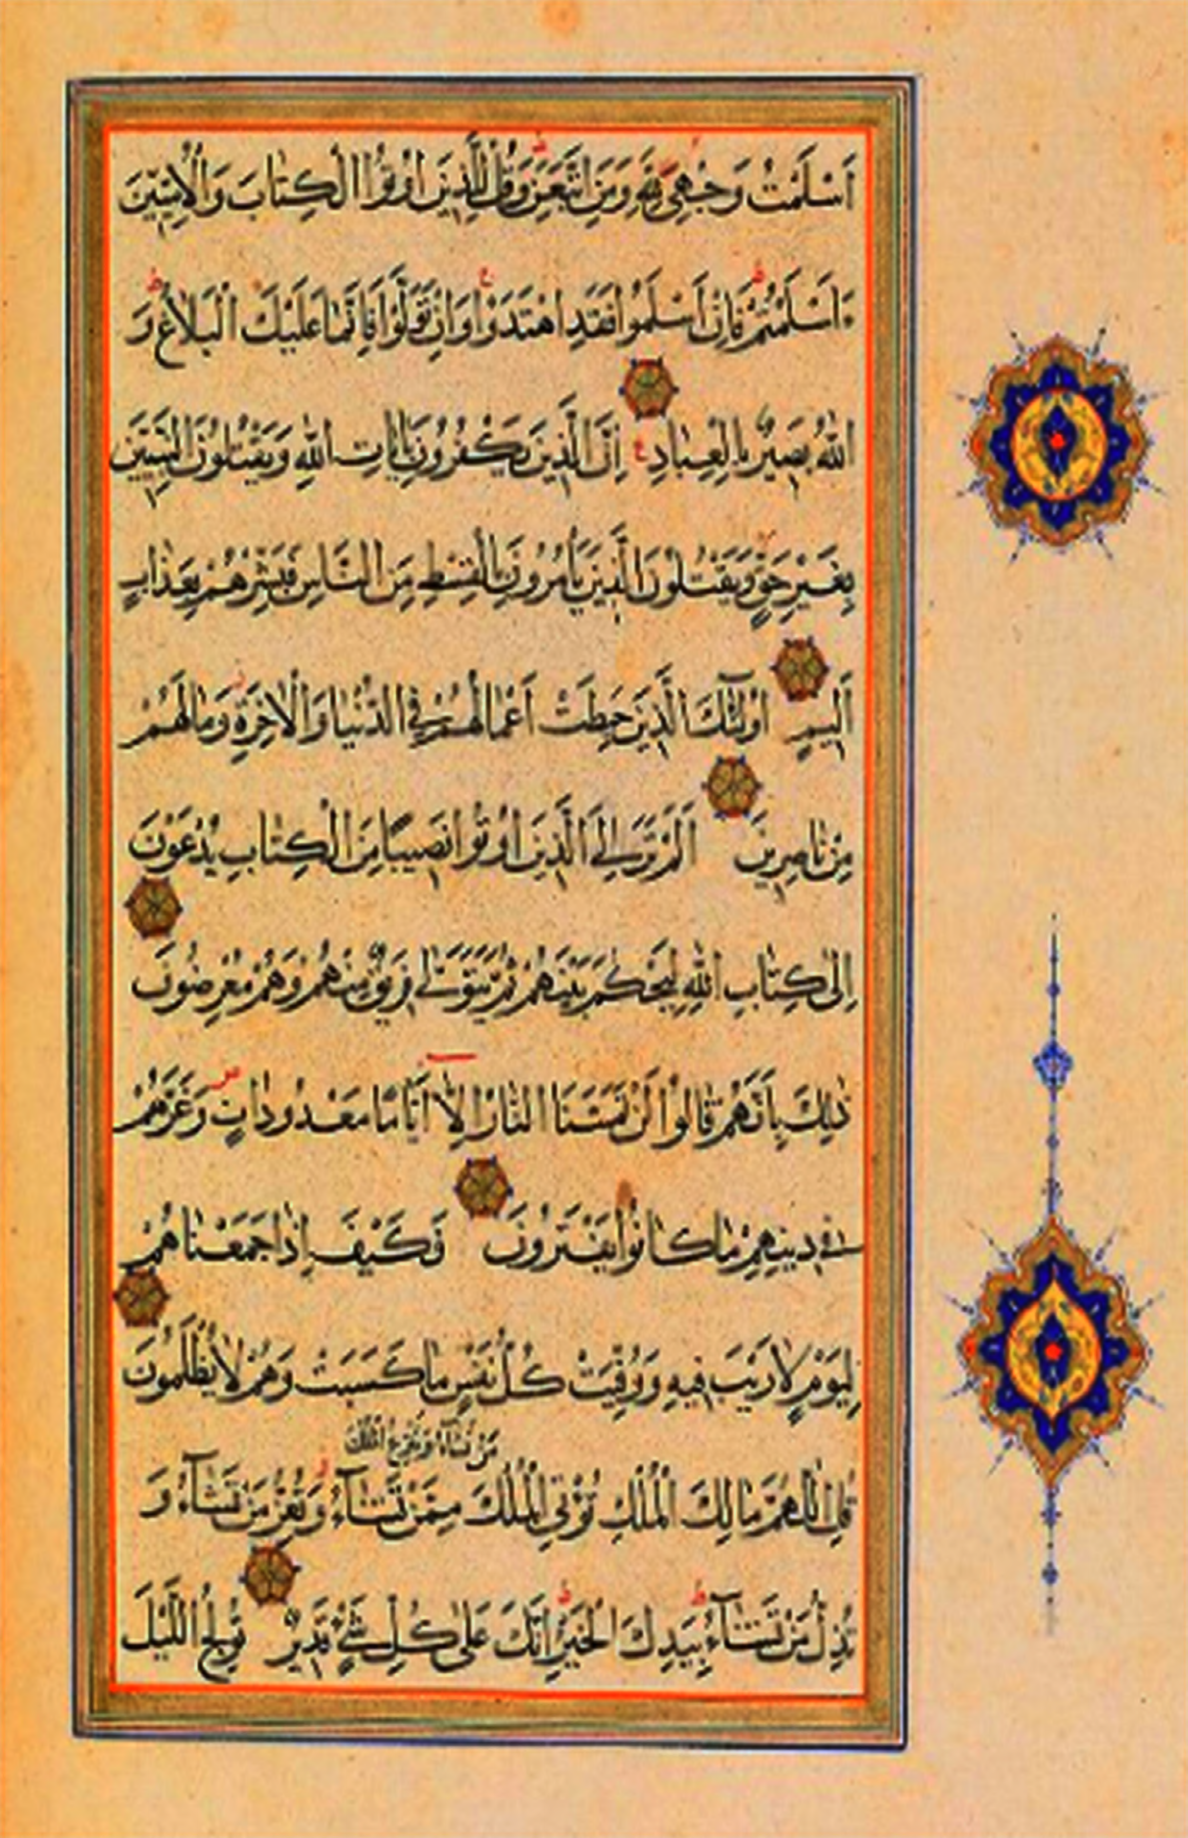 اَسْلَمْتُ وَجْهِيَ لِلّٰهِ وَمَنِ اتَّبَعَنِ وَقُلْ لِلَّذِينَ اُوتُوا الْكِتَابَ وَالْاُمِّيِّنَ
ءَاَسْلَمْتُمْ فَاِنْ اَسْلَمُوا فَقَدِ اهْتَدَوْا وَاِنْ تَوَلَّوْا فَاِنَّمَا عَلَيْكَ الْبَلَاغُ وَ
اللّٰهُ بَصِيرٌ بِالْعِبَادِ اِنَّ الَّذِينَ يَكْفُرُونَ بِاٰيَاتِ اللّٰهِ وَيَقْتُلُونَ النَّبِيِّنَ
بِغَيْرِ حَقٍّ وَيَقْتُلُونَ الَّذِينَ يَأْمُرُونَ بِالْقِسْطِ مِنَ النَّاسِ فَبَشِّرْهُمْ بِعَذَابٍ
اَلِيمٍ اُولٰئِكَ الَّذِينَ حَبِطَتْ اَعْمَالُهُمْ فِي الدُّنْيَا وَالْاٰخِرَةِ وَمَا لَهُمْ
مِنْ نَاصِرِينَ اَلَمْ تَرَ اِلَى الَّذِينَ اُوتُوا نَصِيبًا مِنَ الْكِتَابِ يُدْعَوْنَ
اِلٰى كِتَابِ اللّٰهِ لِيَحْكُمَ بَيْنَهُمْ ثُمَّ يَتَوَلّٰى فَرِيقٌ مِنْهُمْ وَهُمْ مُعْرِضُونَ
ذٰلِكَ بِاَنَّهُمْ قَالُوا لَنْ تَمَسَّنَا النَّارُ اِلَّا اَيَّامًا مَعْدُودَاتٍ وَغَرَّهُمْ
فِي دِينِهِمْ مَا كَانُوا يَفْتَرُونَ فَكَيْفَ اِذَا جَمَعْنَاهُمْ
لِيَوْمٍ لَا رَيْبَ فِيهِ وَوُفِّيَتْ كُلُّ نَفْسٍ مَا كَسَبَتْ وَهُمْ لَا يُظْلَمُونَ
مَنْ تَشَاءُ وَتَنْزِعُ الْمُلْكَ
قُلِ اللّٰهُمَّ مَالِكَ الْمُلْكِ تُؤْتِي الْمُلْكَ مِمَّنْ تَشَاءُ وَتُعِزُّ مَنْ تَشَاءُ وَ
تُذِلُّ مَنْ تَشَاءُ بِيَدِكَ الْخَيْرُ اِنَّكَ عَلٰى كُلِّ شَيْءٍ قَدِيرٌ تُولِجُ اللَّيْلَ